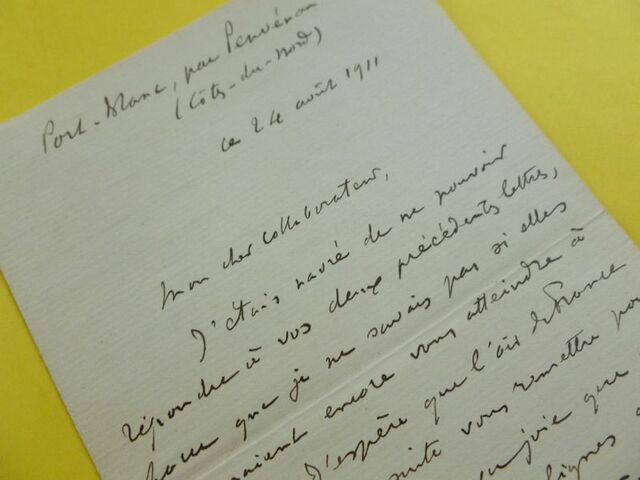 Port-Blanc, par Penvénan
(Côtes-du-Nord)
ce 24 août 1911
Mon cher Collaborateur,
J'étais navré de ne pouvoir
répondre à vos deux précédents lettres,
parce que je ne savais pas si elles
encore vous atteindre à
J'espère que l'air de France
suite vous remettre
joie que
lignes